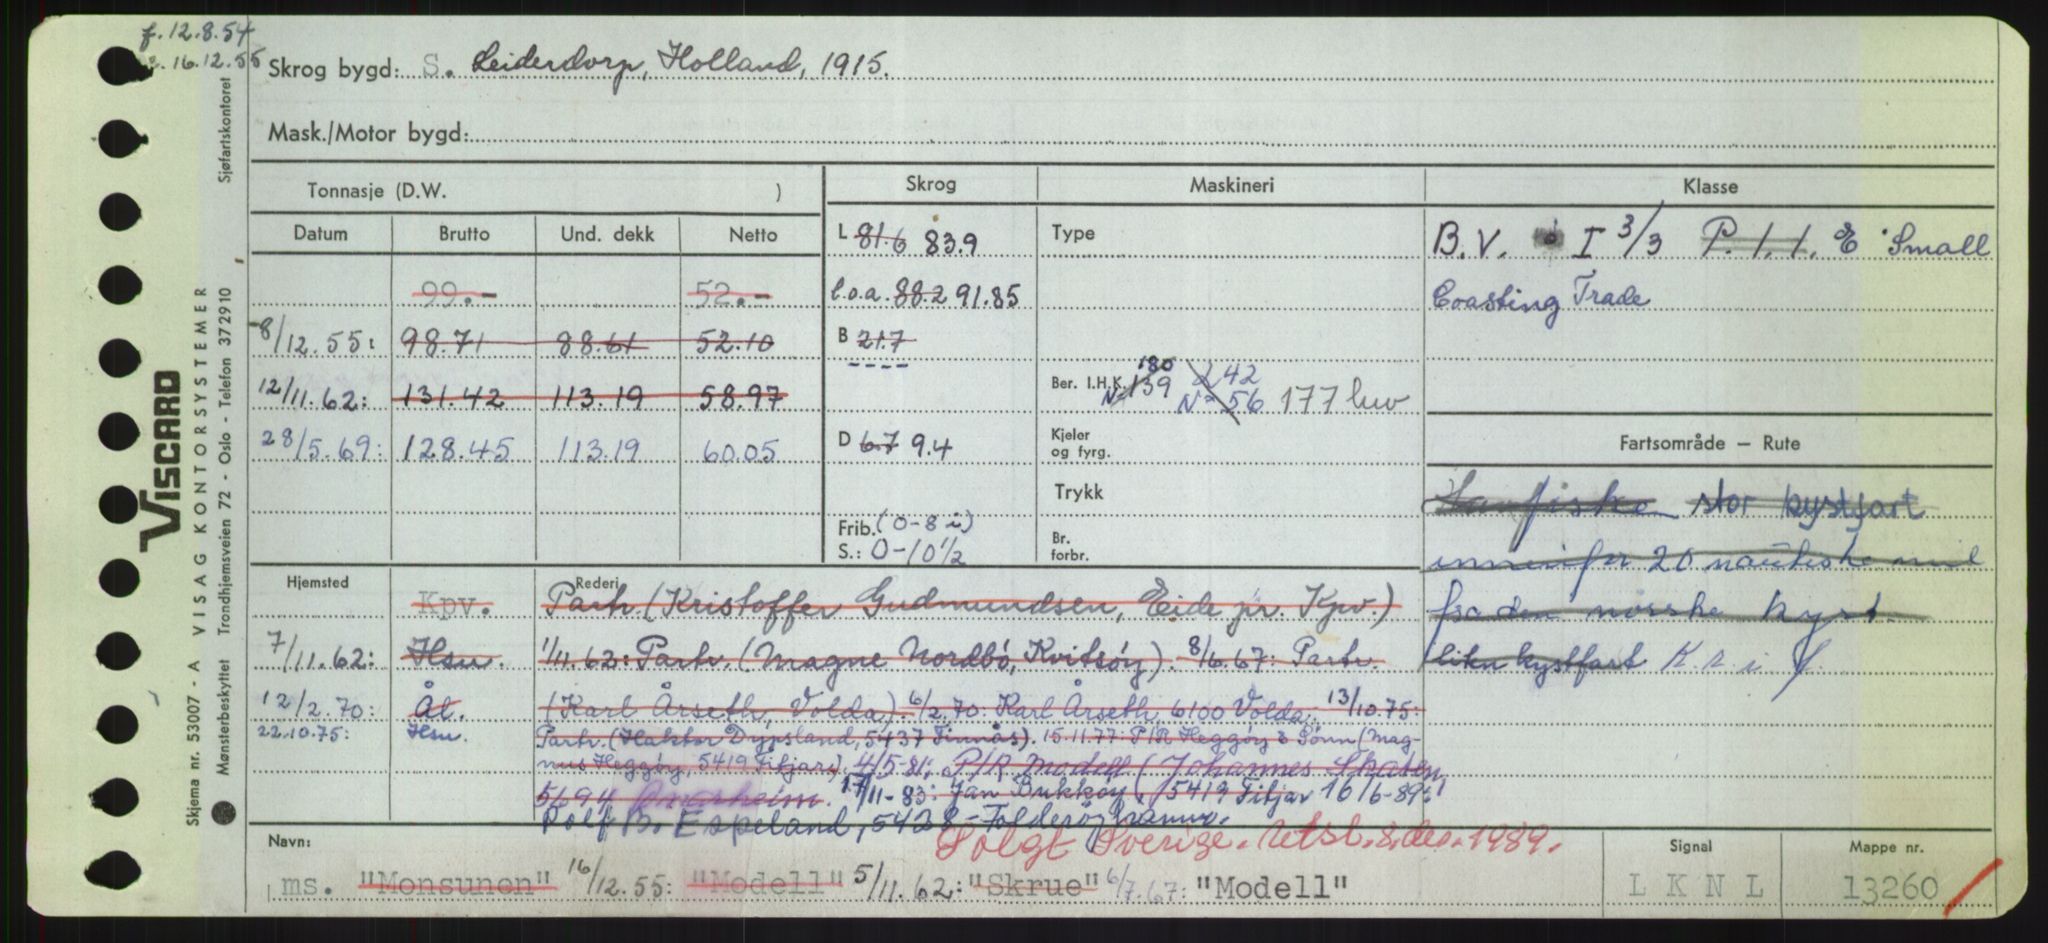 f. 12.8.54
16.12.55
Skrog bygd: S. Leiderdorp, Holland, 1915.
Mask./Motor bygd:
Sjøfartskontoret
Trondhjemsveien 72 - Oslo - Telefon 37 29 10
Mønsterbeskyttet
VISCARD
A VISAG KONTORSYSTEMER
Skjema nr. 53007 -
Tonnasje (D.W. )
Datum Brutto Und. dekk Netto
99.- 52.-
8/12.55: 98.71 88.61 52.10
12/11.62: 131.42 113.19 58.97
28/5.69: 128.45 113.19 60.05
Skrog
L 81.6 83.9
l.o.a. 88.2 91.85
B 21.7
----
D 6.7 9.4
Frib. (0-8 i)
S.: 0-10½
Maskineri
Type
Ber. I.H.K. N=139 180 242 N=56 177 hw
Kjeler og fyrg.
Trykk
Br. forbr.
Klasse
B.V. I 3/3 P.1.1. E Small
Coasting Trade
Fartsområde – Rute
stor kystfart
innenfor 20 nautiske mil
fra den norske kyst.
liten kystfart
Hjemsted Rederi
Kpv. Partr. (Kristoffer Gudmundsen, Eide pr. Kpv.)
7/11.62: Hsu. 1/11.62: Partr. (Magne Nordbö, Kvitsöy). 8/6.67: Partr.
12/2.70: Ål. (Karl Årseth, Volda). 6/2.70: Karl Årseth, 6100 Volda. 13/10.75:
22.10.75: Hsu. Partr. (Haktor Dypsland, 5437 Finnås). 15.11.77: P/R Heggöy & Sönn (Mag-
nus Heggöy, 5419 Fitjar). 4/5-81: P/R Modell (Johannes
5694 17/11-83: Jan Bukköy, 5419 Fitjar 16/6-89:
Rolf B. Espeland, 5428 - Folderöyhamn.
Solgt Sverige. 8. des. 1989.
Navn: Signal Mappe nr.
ms. "Monsunen" 16/12.55: "Modell" 5/11.62: "Skrue" 6/7.67: "Modell" LKNL 13260